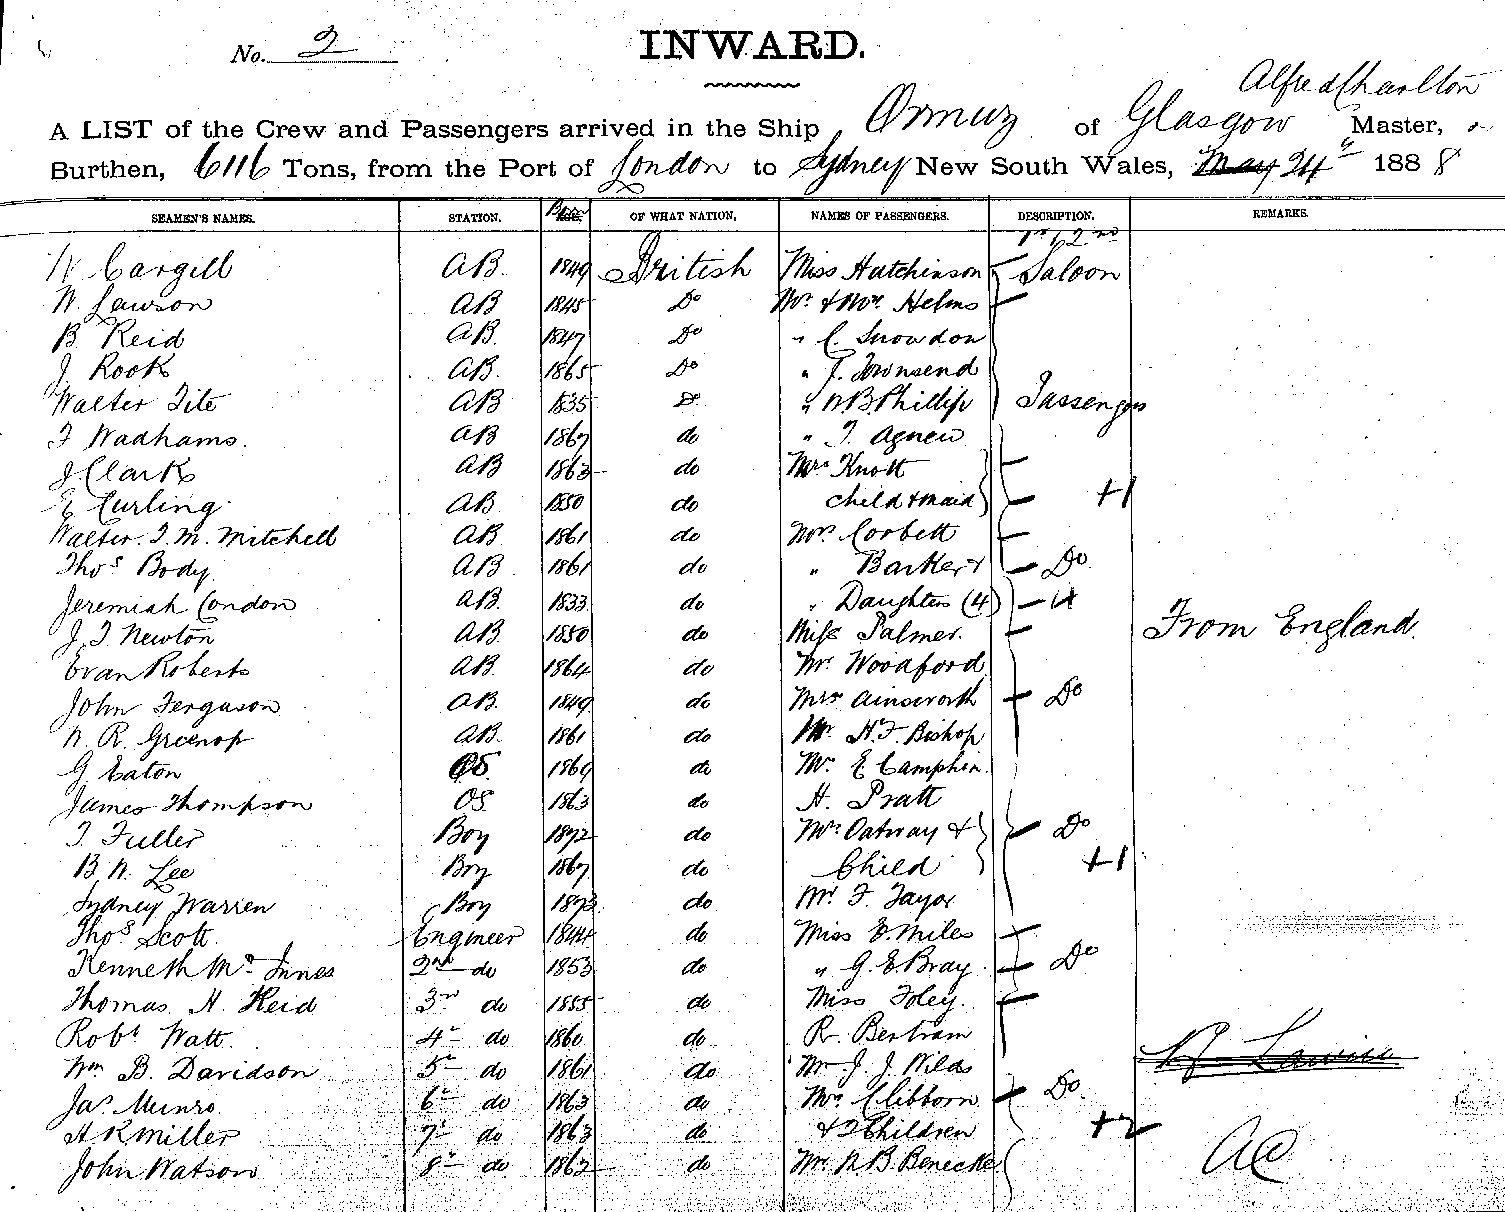 No. 2
INWARD.
Alfred Charlton
A LIST of the Crew and Passengers arrived in the Ship Ormuz of Glasgow Master,
Burthen, 6116 Tons, from the Port of London to Sydney New South Wales, May 24th 1888
SEAMEN'S NAMES. STATION. OF WHAT NATION, NAMES OF PASSENGERS. DESCRIPTION. REMARKS.
1st & 2nd
W Cargill AB. 1849 British Miss Hutchinson Saloon
W. Lawson AB 1845 Do Mr. & Mrs. Helms
B Reid AB. 1847 Do " C. Snowdon
J. Rook AB. 1865 Do " J. Townsend
Walter Tite AB 1835 Do " W B. Phillip Passengers
F Wadhams. AB 1867 do " T. Agnew
J. Clark AB 1863 do Mrs Knott
E Curling AB. 1850 do Child & maid +1
Walter. T. M. Mitchell AB 1861 do Mrs. Corbett
Thos Body AB 1861 do " Barker & Do
Jeremiah Condon AB. 1833 do " Daughters (4) 4
J. T. Newton AB. 1850 do Miss Palmer. From England.
Evan Roberts AB. 1864 do Mr. Woodford
John Ferguson AB. 1849 do Mrs Ainsworth Do
W. R. Greenop AB. 1861 do Mr. H. F. Bishop
G. Eaton OS. 1869 do Mr. E. Camphin.
James Thompson OS 1863 do H. Pratt
T. Fuller Boy 1872 do Mrs. Oatway & Do
B. W. Lee Boy 1867 do Child +1
Sydney Warren Boy 1873 do Mr F. Tayor
Thos Scott. Engineer 1844 do Miss E. Miles
Kenneth Mc Innes 2nd do 1853 do " G. E. Bray. Do
Thomas H. Reid 3rd do 1855 do Miss Foley.
Robt Watt. 4th do 1860 do R. Bertram
Wm B. Davidson 5th do 1861 do Mr J. J. Wilds
Jas. Munro 6th do 1863 do Mrs. Clibborn Do
A R Miller 7th do 1863 do & 2 Children +2
John Watson 8th do 1862 do Mr. W B. Benecke